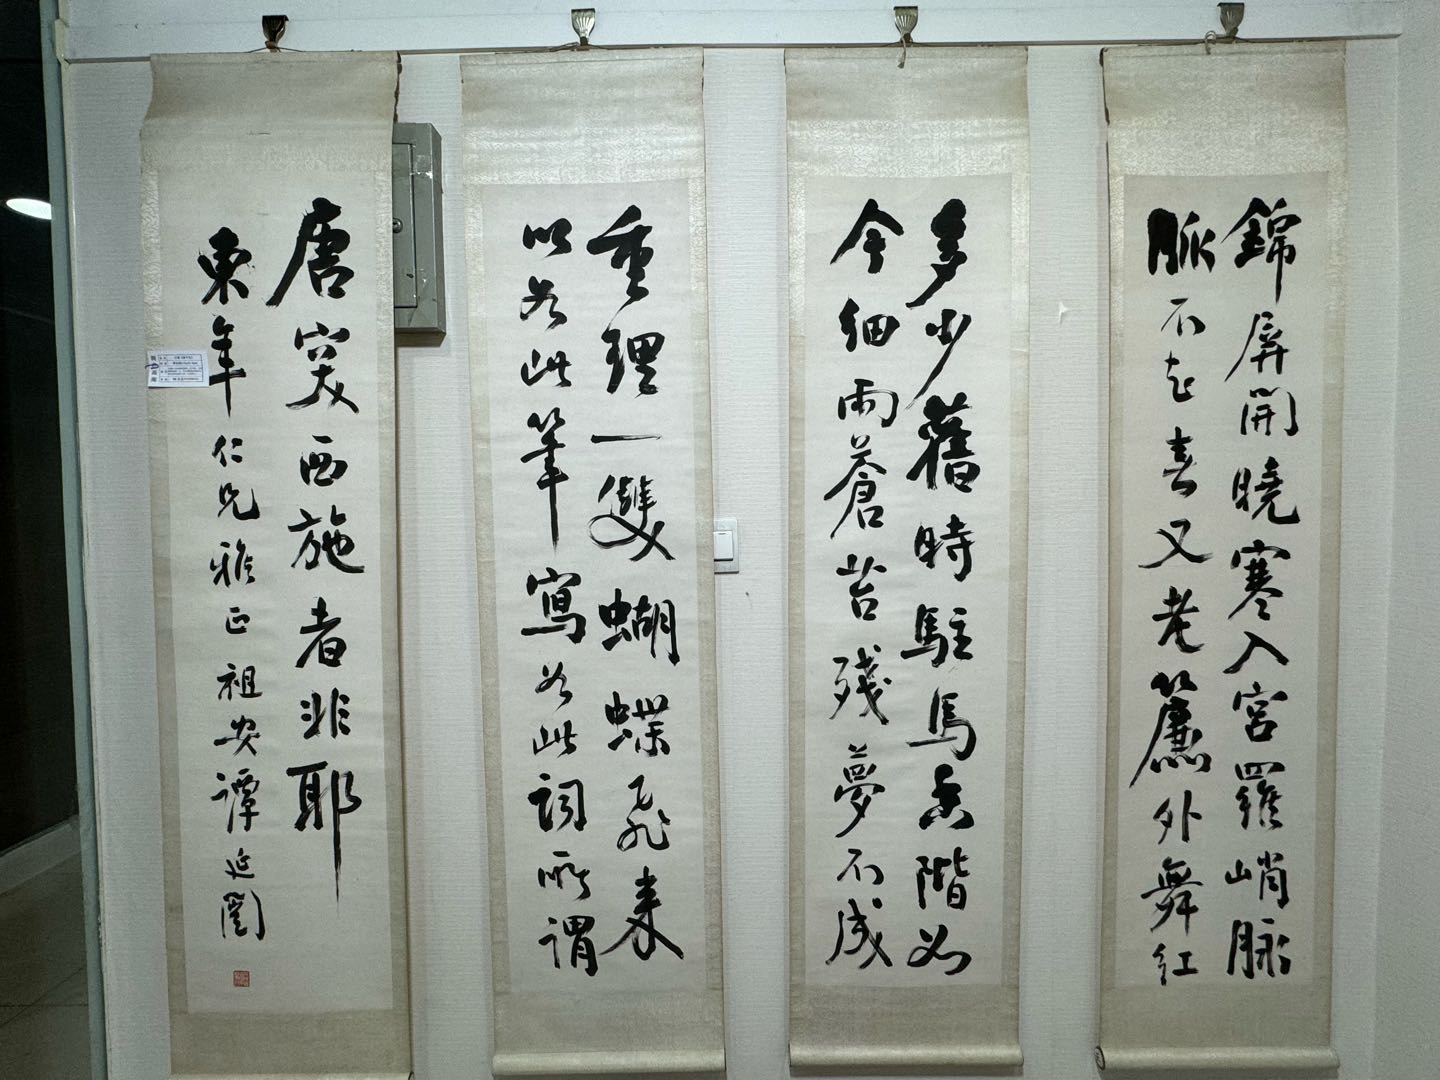 錦屏開曉寒入宮羅峭脉
脈不知春又老簾外舞紅
多少舊時駐馬香階如
今細雨蒼苔殘夢不成
重理一雙蝴蝶飛來
以如此筆寫如此詞所謂
唐突西施者非耶
東年仁兄雅正祖安譚延闓